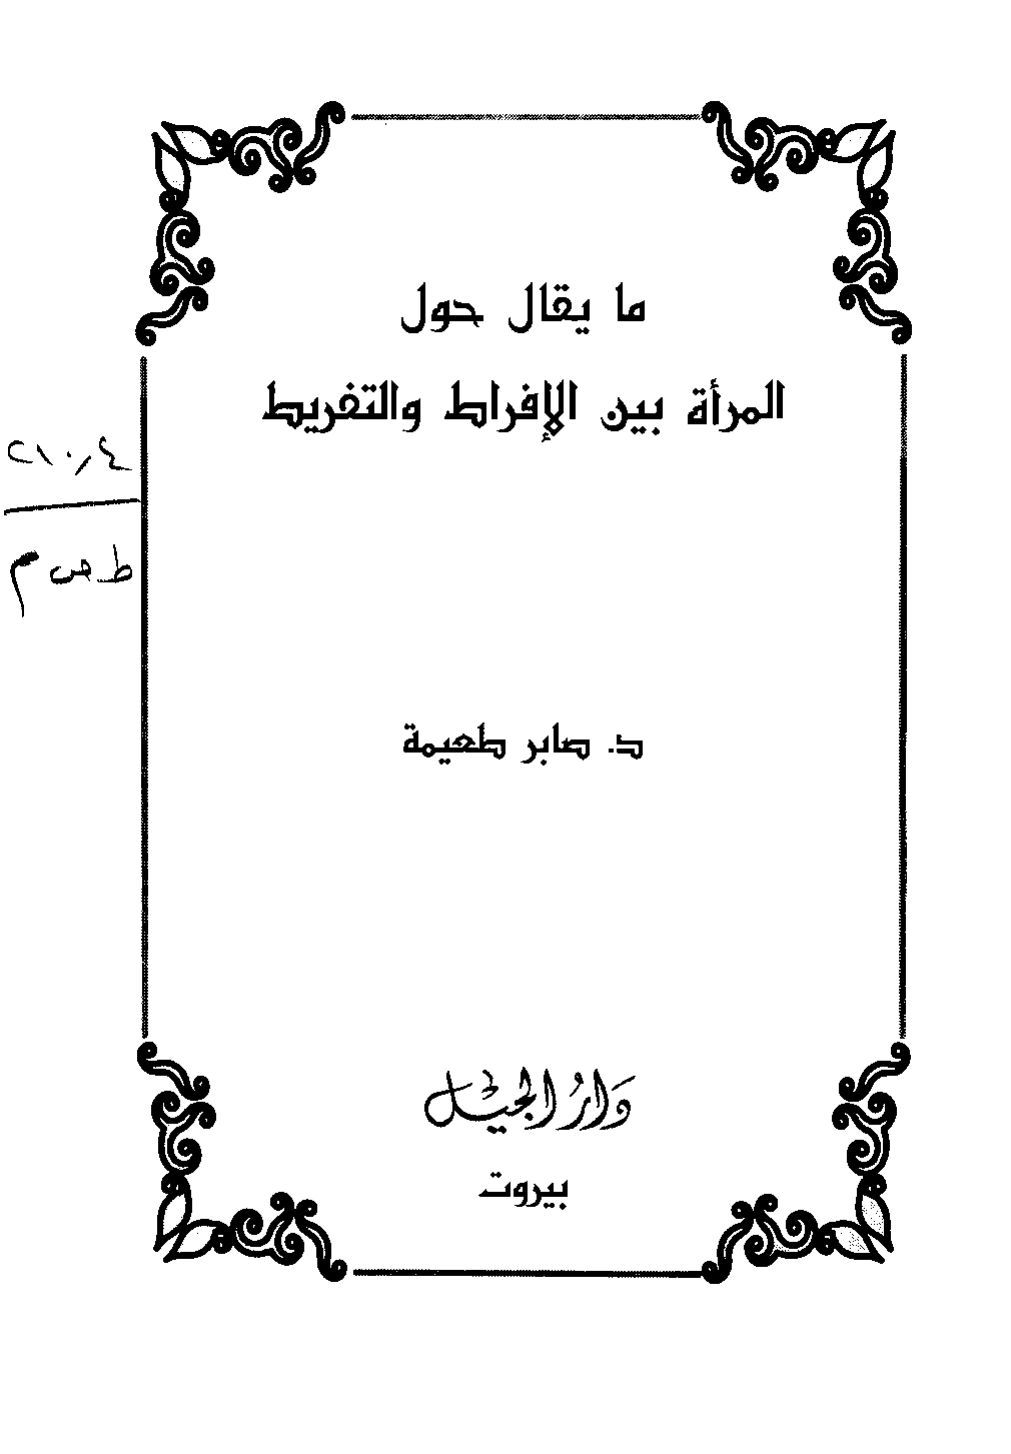 ما يقال حول
المرأة بين الإفراط والتفريط
٢١٠,٤
ط ص م
د. صابر طعيمة
دَارُ الجيْل
بيروت